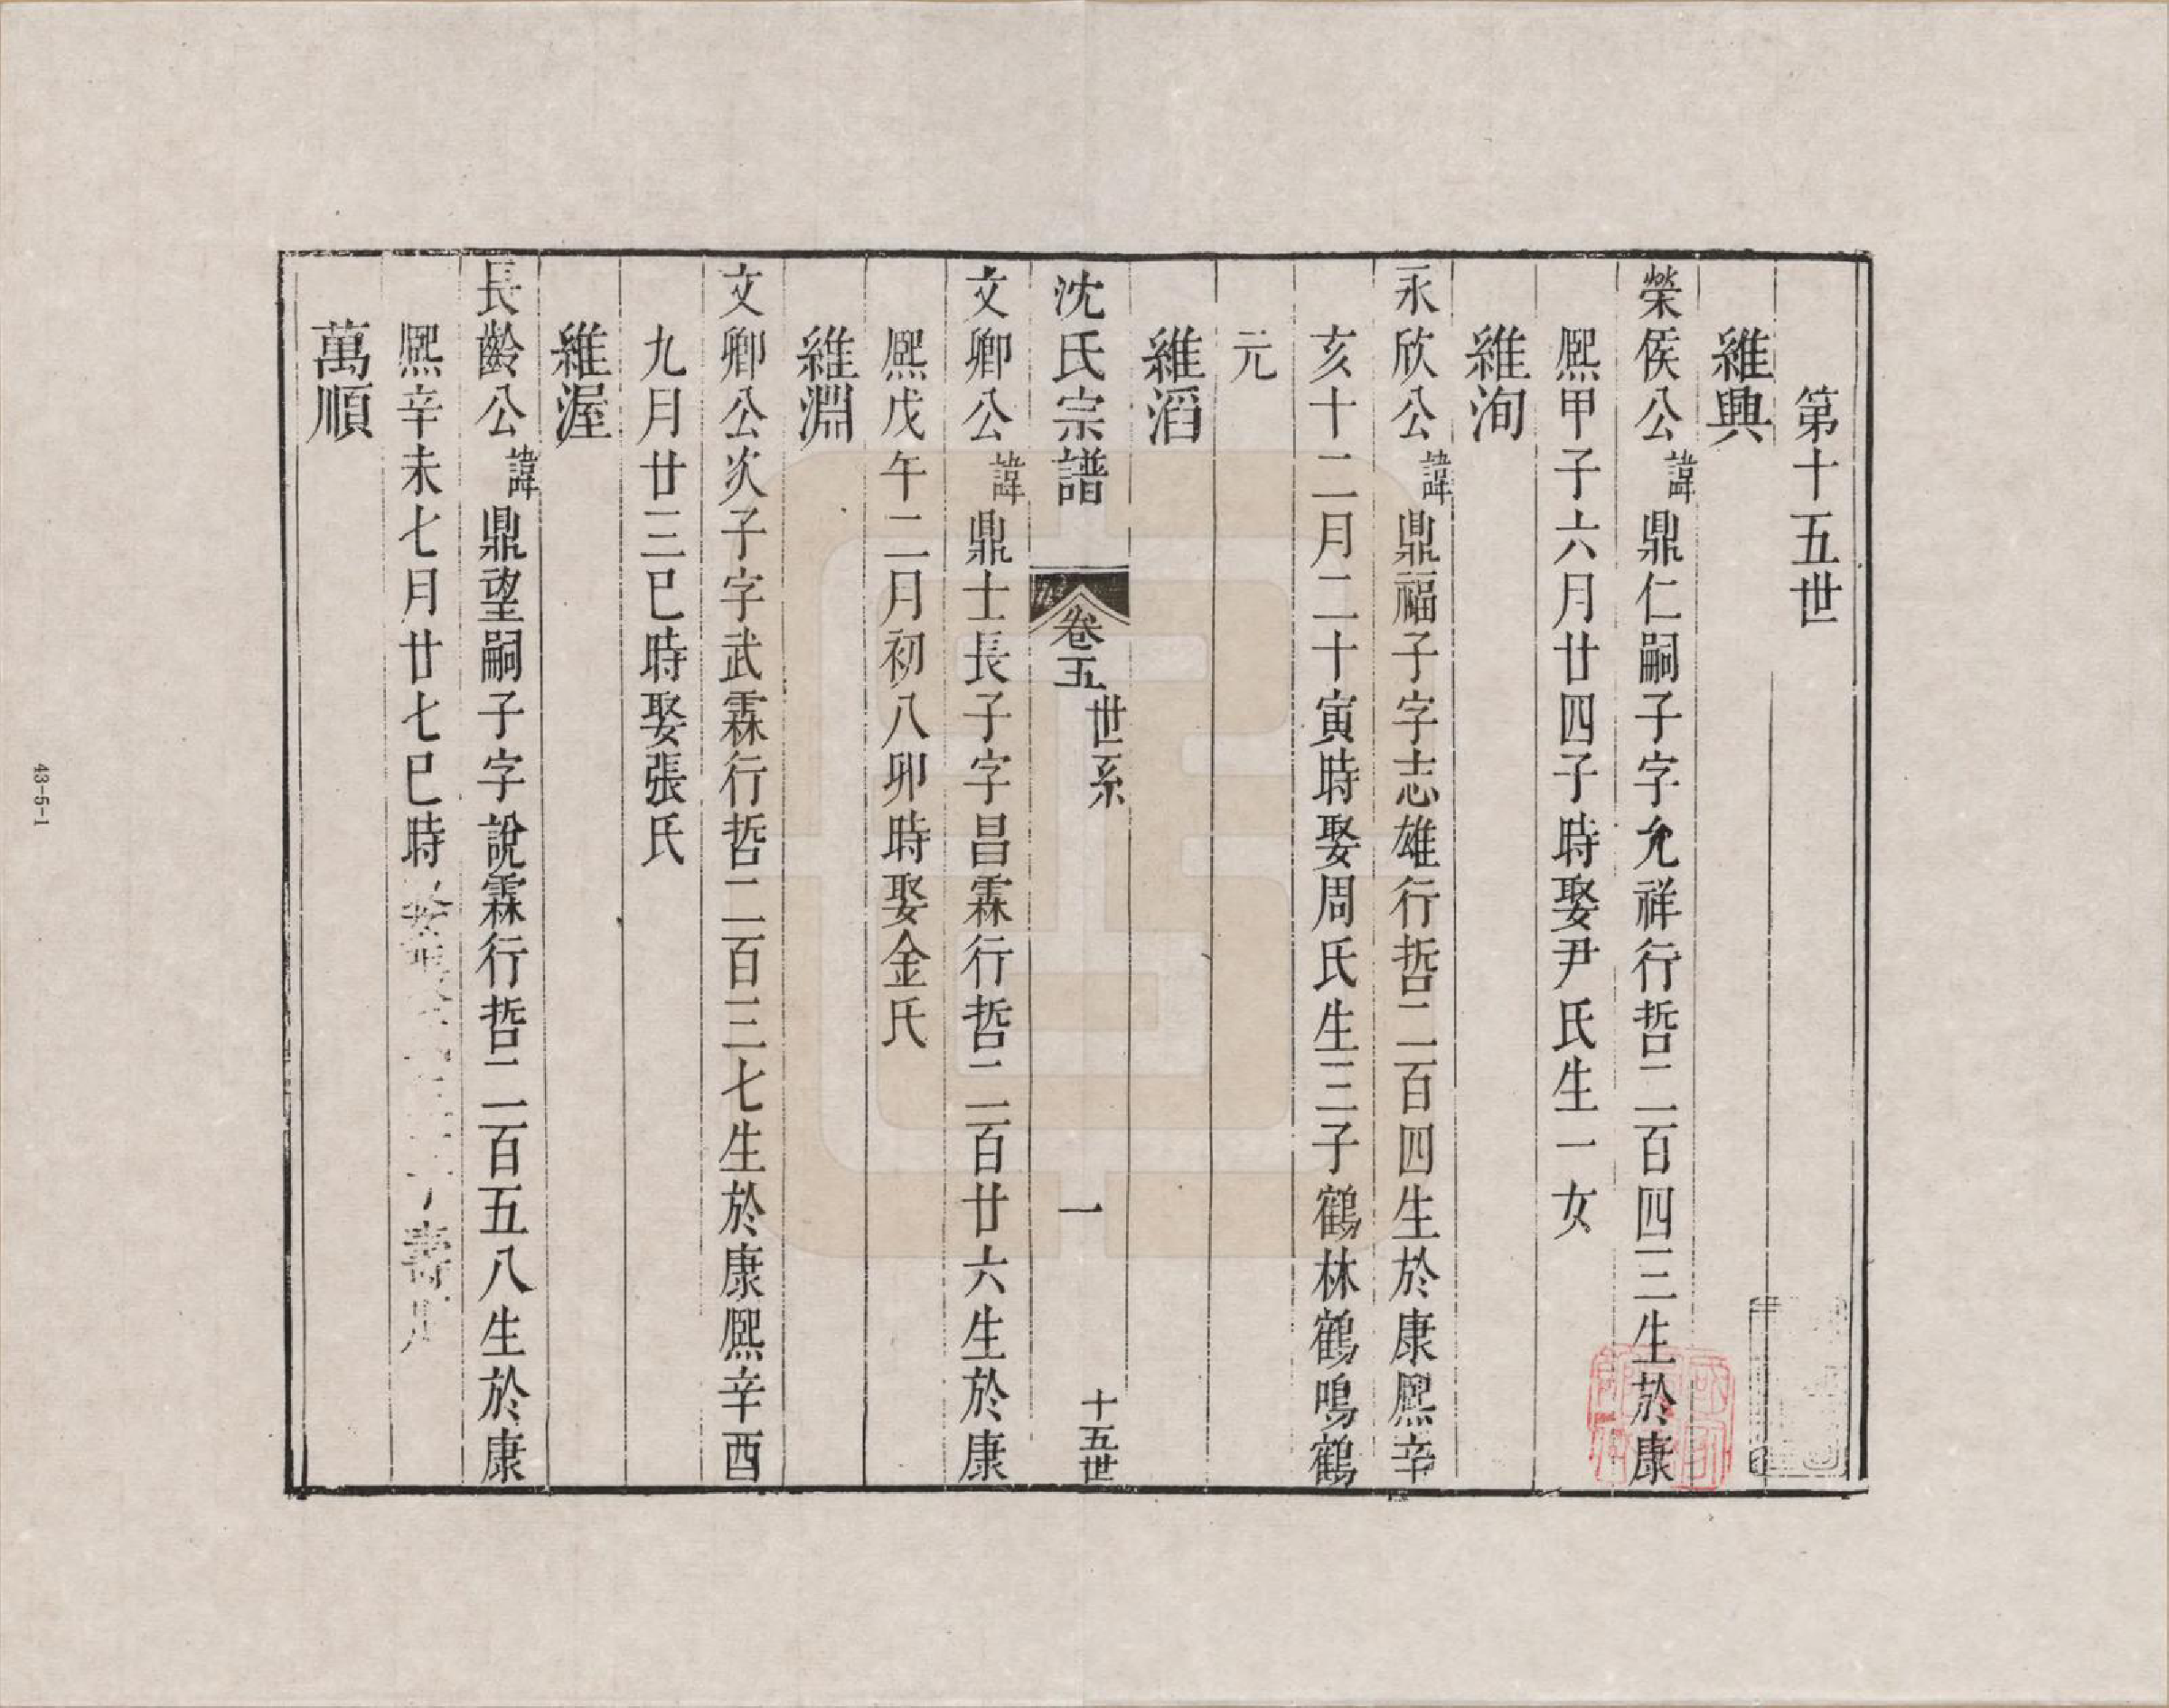 第十五世
維興
榮侯公諱鼎仁嗣子字允祥行哲二百四三生於康
熈甲子六月廿四子時娶尹氏生一女
維洵
永欣公諱鼎福子字志雄行哲二百四生於康熈辛
亥十二月二十寅時娶周氏生三子鶴林鶴鳴鶴
元
維滔
沈氏宗譜
卷五
世系
一
十五世
文卿公諱鼎士長子字昌霖行哲二百廿六生於康
熈戊午二月初八卯時娶金氏
維淵
文卿公次子字武霖行哲二百三七生於康熈辛酉
九月廿三巳時娶張氏
維渥
長齡公諱鼎望嗣子字說霖行哲二百五八生於康
熈辛未七月廿七巳時娶
萬順
43-5-1